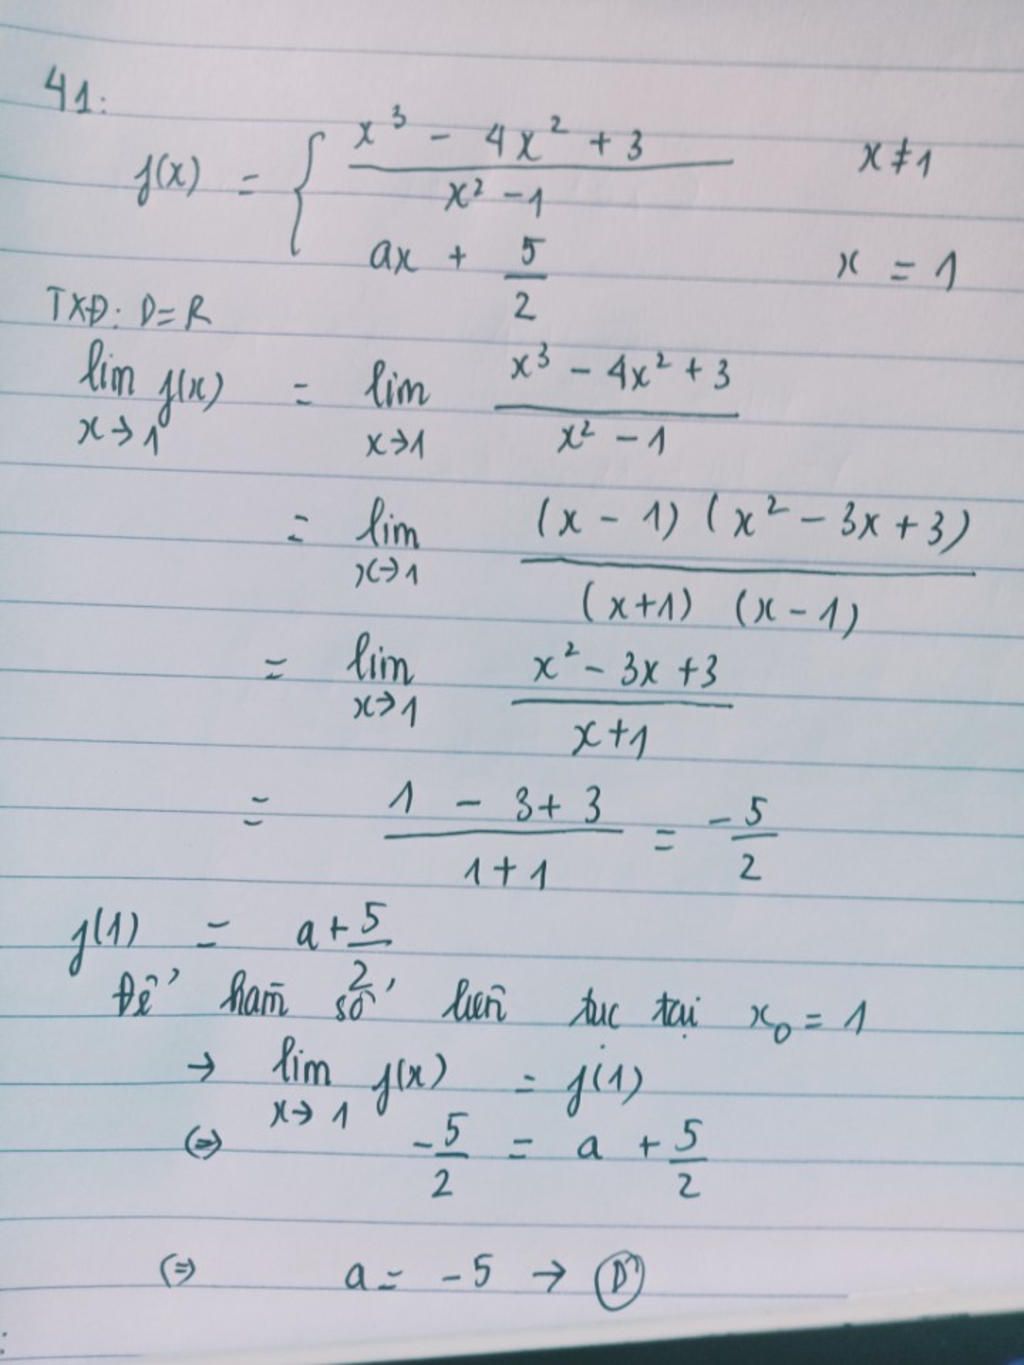 41:
f(x) = { x³ - 4x² + 3 / x² - 1     x ≠ 1
ax + 5/2     x = 1
TXĐ: D = R
lim x→1 f(x) = lim x→1 x³ - 4x² + 3 / x² - 1
= lim x→1 (x - 1) (x² - 3x + 3) / (x+1) (x - 1)
= lim x→1 x² - 3x + 3 / x+1
= 1 - 3 + 3 / 1 + 1 = -5/2
f(1) = a + 5/2
Để hàm số liên tục tại x₀ = 1
→ lim x→1 f(x) = f(1)
(=) -5/2 = a + 5/2
(=) a = -5 → D